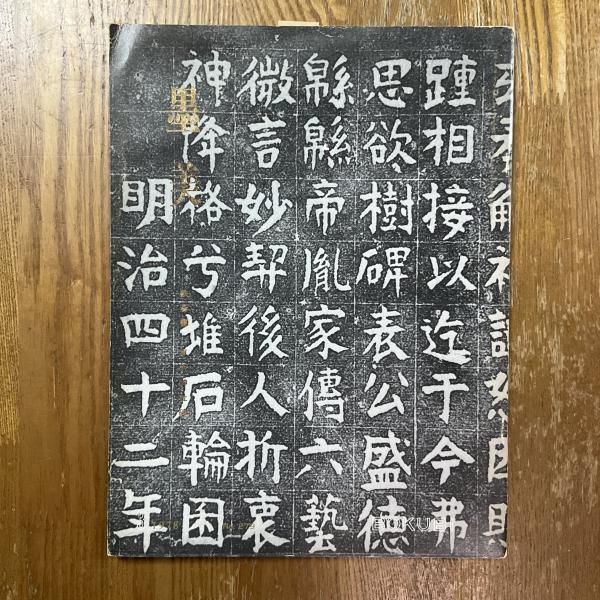 踵相接以迄于今弗
思欲樹碑表公盛德
緜緜帝胤家傳六藝
微言妙契後人折衷
神降格兮堆石輪囷
明治四十二年
墨美
BOKUBI